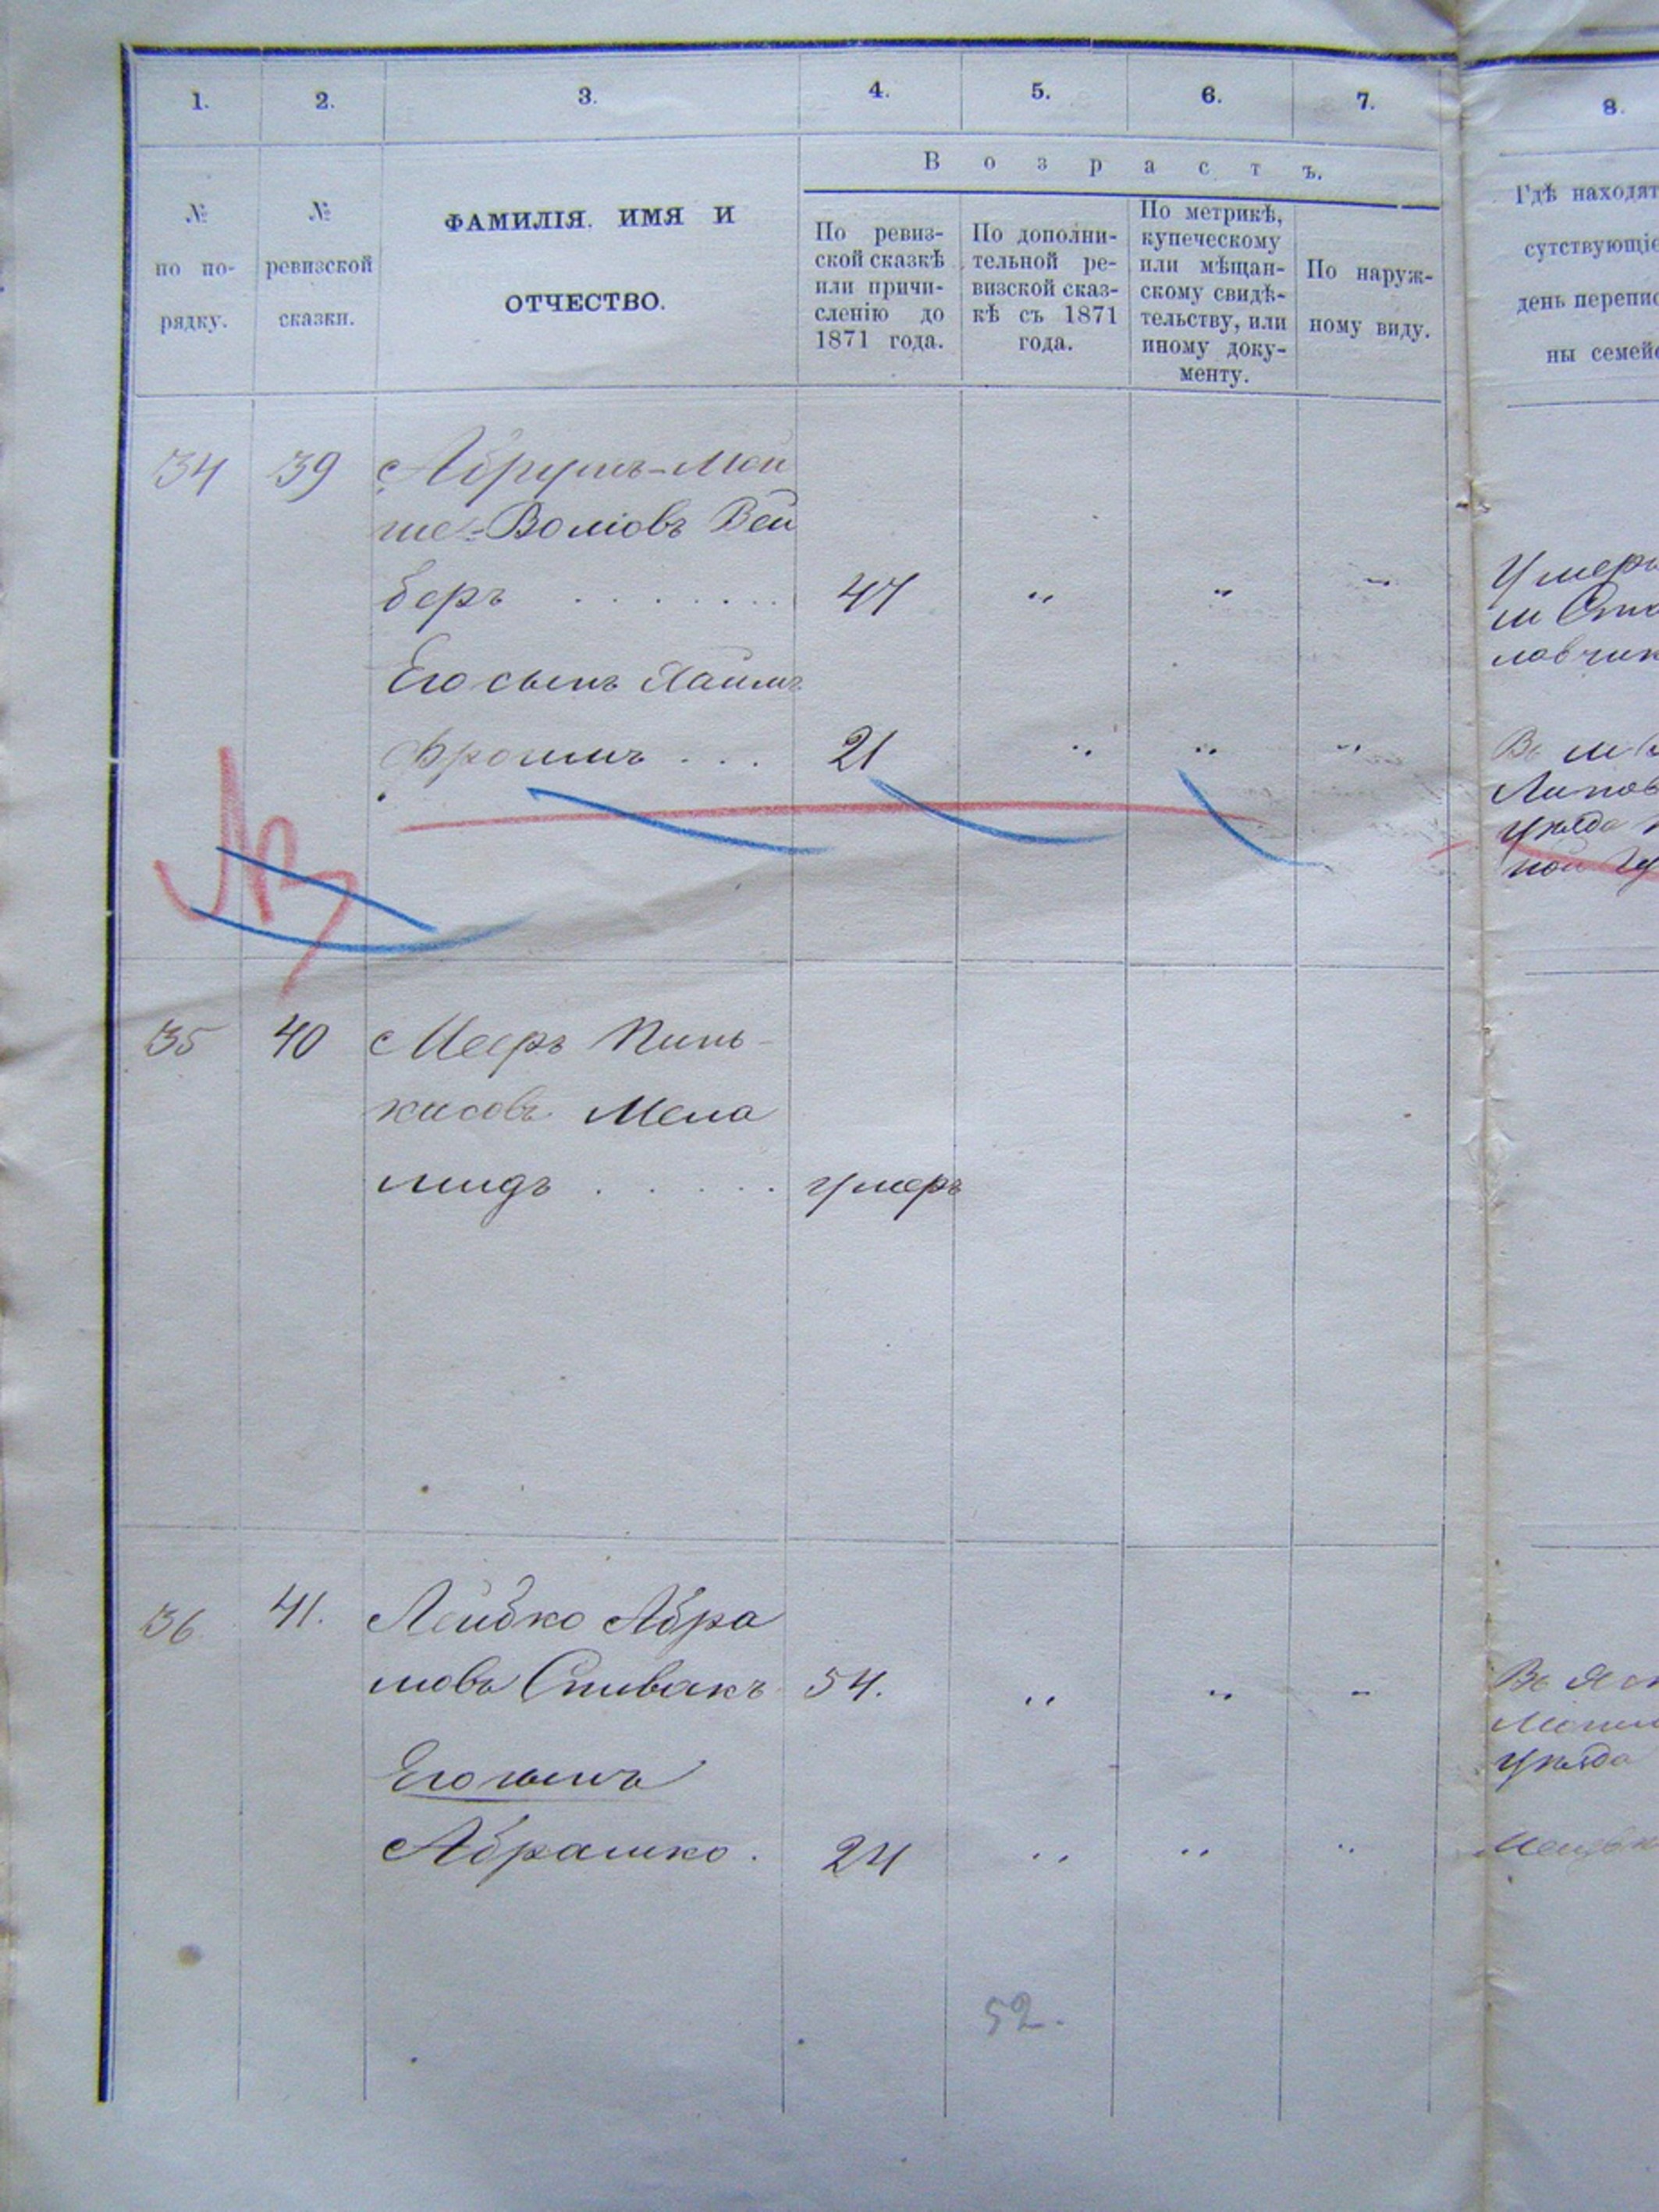 1. 2. 3. 4. 5. 6. 7. 8.
В о з р а с т ъ.
№ по по-рядку.
№ ревизской сказки.
ФАМИЛІЯ. ИМЯ И
ОТЧЕСТВО.
По ревиз-
ской сказкѣ
или причи-
сленію до
1871 года.
По дополни-
тельной ре-
визской сказ-
кѣ съ 1871
года.
По метрикѣ,
купеческому
или мѣщан-
скому свидѣ-
тельству, или
иному доку-
менту.
По наруж-
ному виду.
Гдѣ находят
сутствующіе
день перепис
ны семейс
34 39 Абрумъ-Мой
ше-Волковъ Вей
беръ . . . . . . . 47 " " "
Умеръ
ловчик
Его сынъ Хаимъ
Фроимъ . . . 21 " " "
Въ м
Липов
уѣзда
ной Гу
35 40 Мееръ Пинь-
касовъ Мела
мидъ . . . . . умеръ
36 41. Лейбко Абра
мовъ Спивакъ 54. " " "
Его сынъ
Абрашко . 24 " " "
Въ
Могил
уѣзда
52.